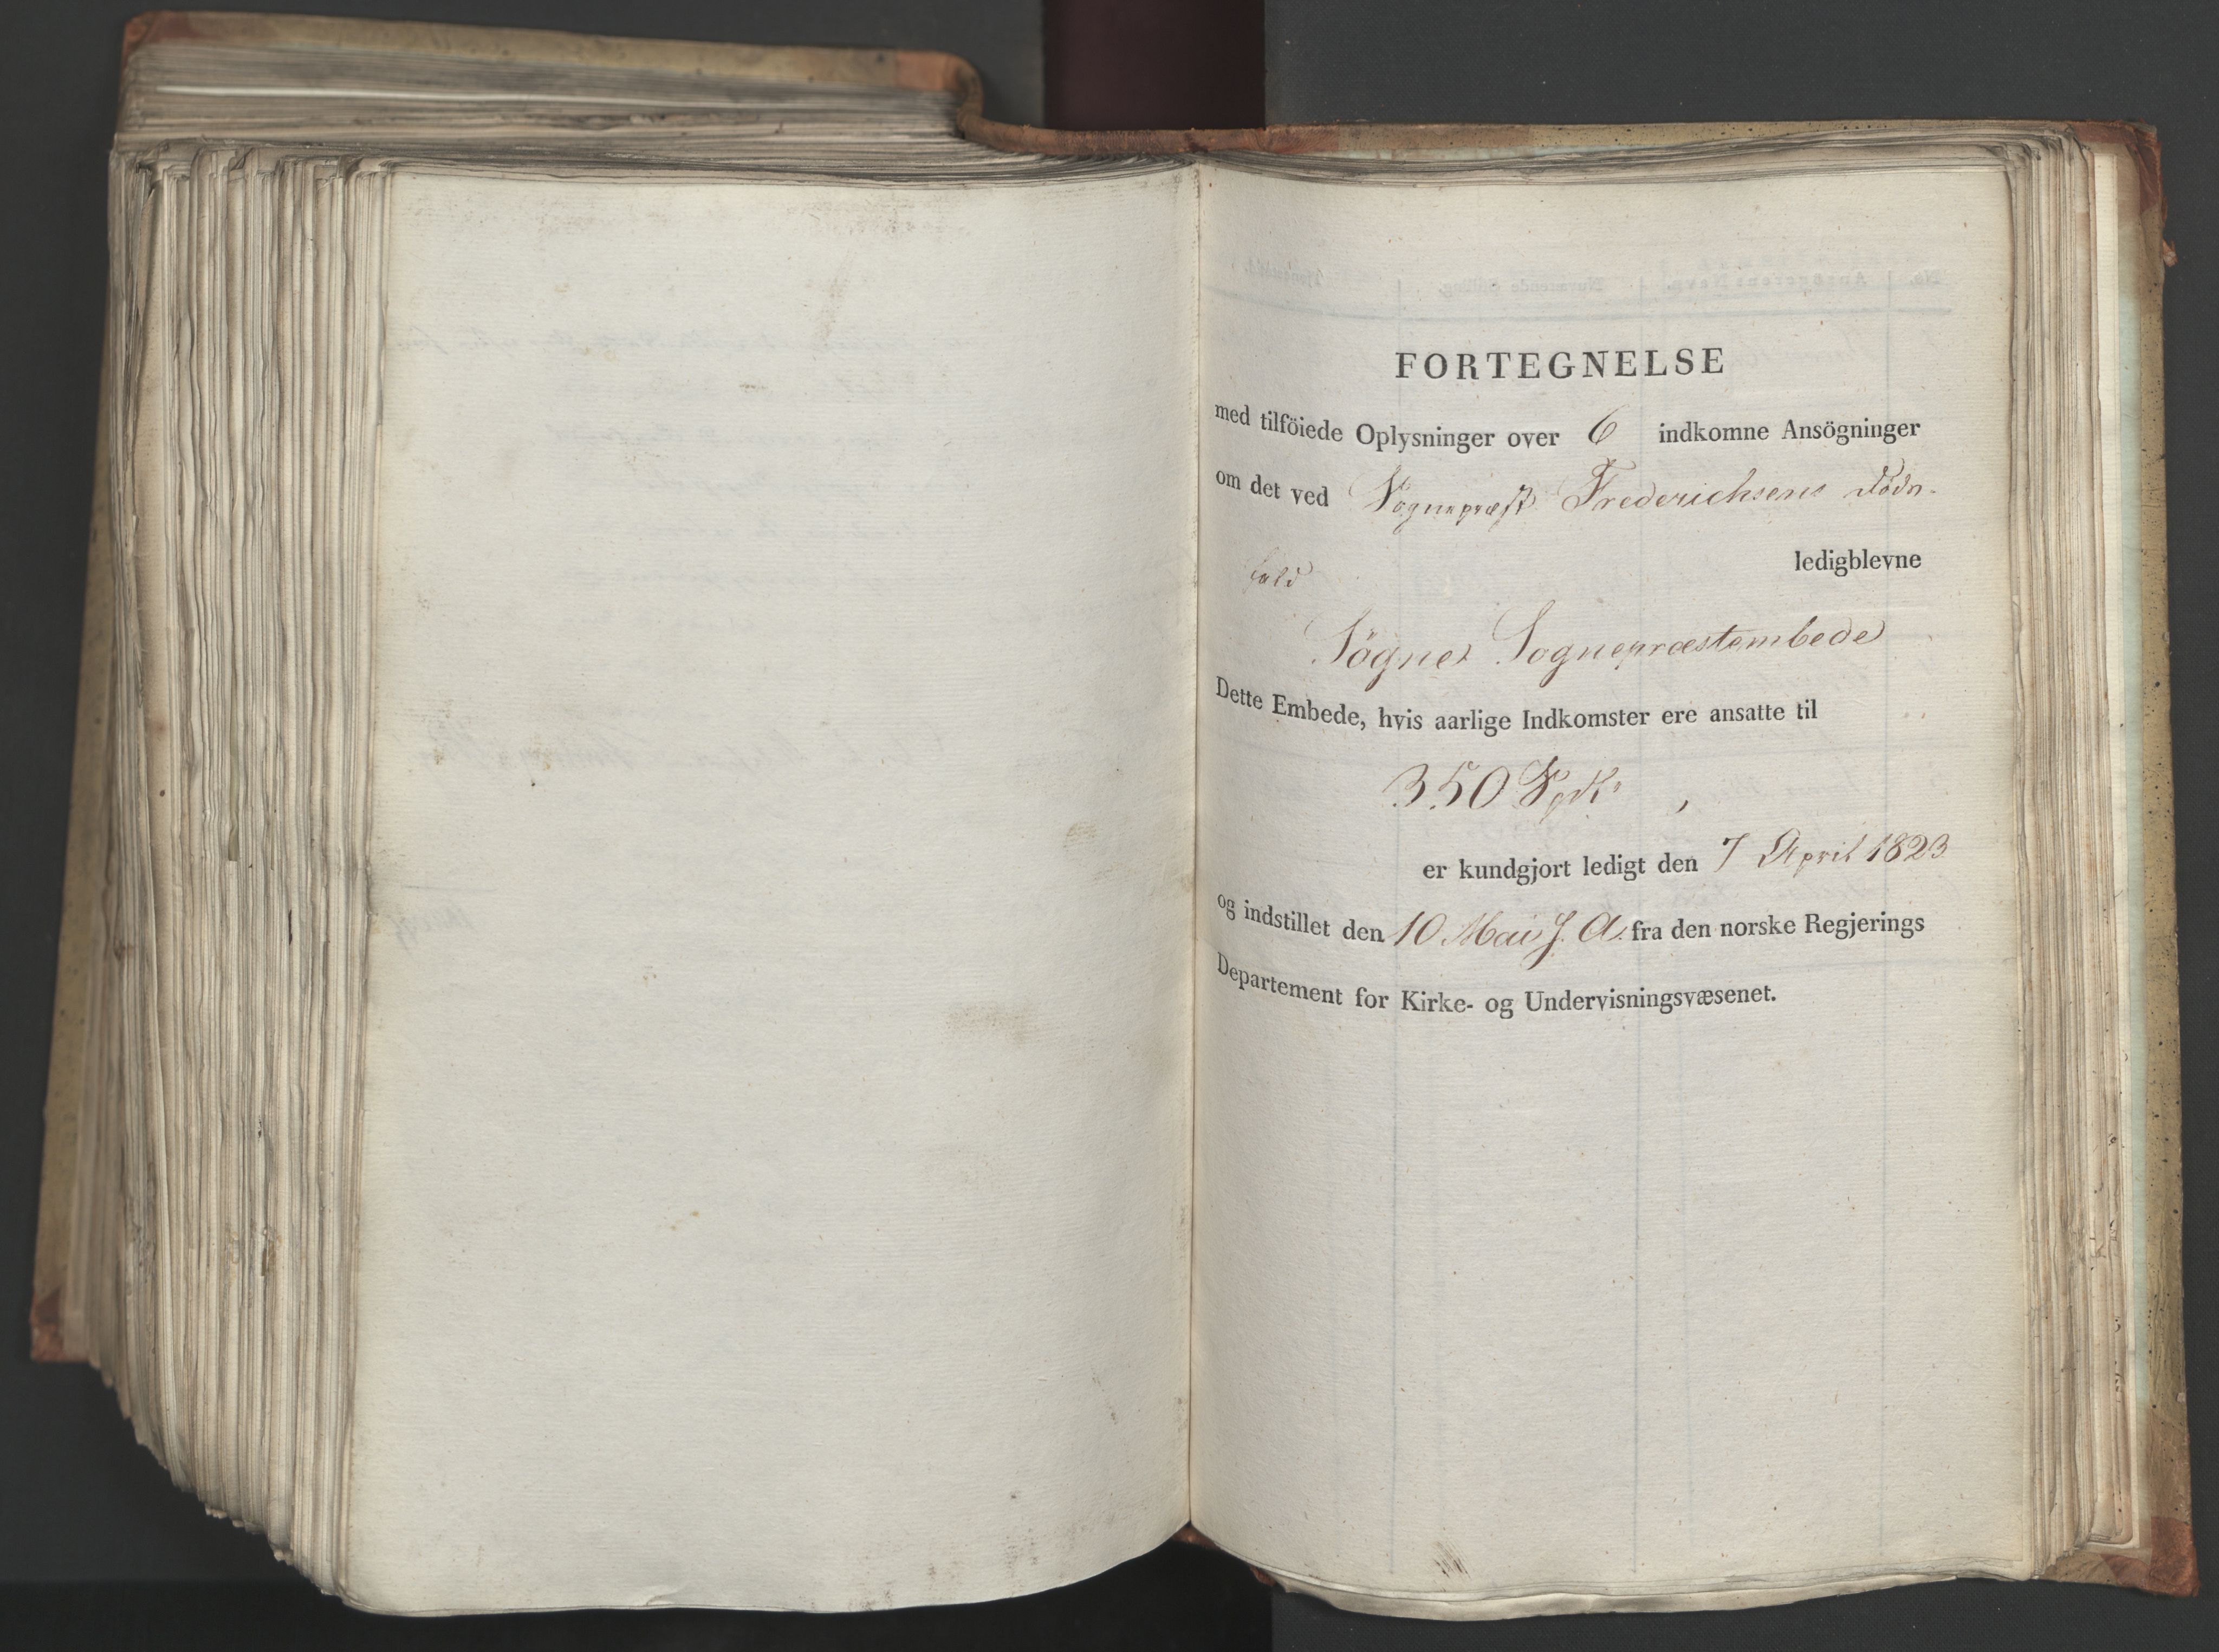 FORTEGNELSE
med tilföiede Oplysninger over 6 indkomne Ansögninger
om det ved Sognepræst Frederichsens Döds-
fald ledigblevne
Sögne Sognepræstembede
Dette Embede, hvis aarlige Indkomster ere ansatte til
350 Spdr ,
er kundgjort ledigt den 7 April 1823
og indstillet den 10 Mai s. A. fra den norske Regjerings
Departement for Kirke- og Undervisningsvæsenet.